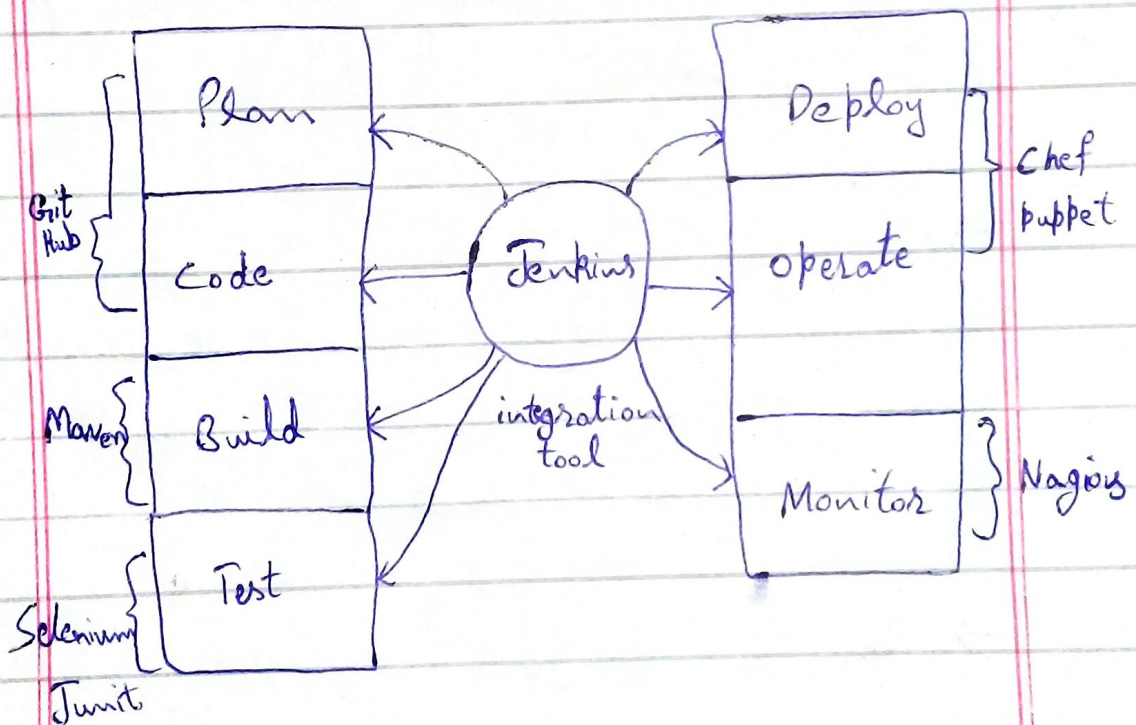 Plan
Git
Hub
Code
Maven
Build
Selenium
Junit
Test
Jenkins
integration
tool
Deploy
Chef
puppet
operate
Monitor
Nagios